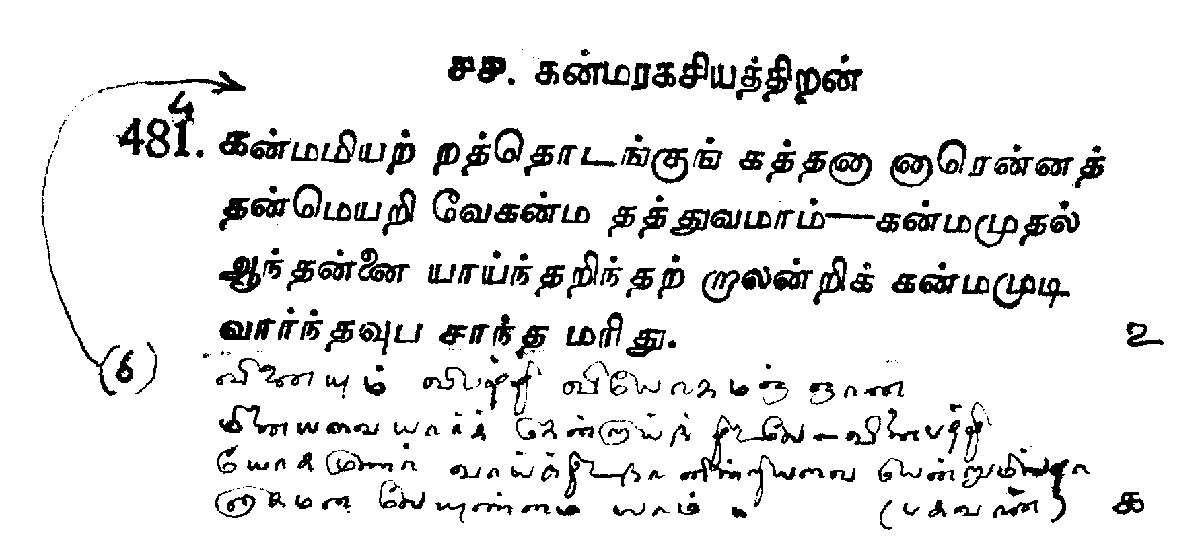 ௪௪. கன்மரகசியத்திறன்
4
481. கன்மமியற் றத்தொடங்குங் கத்தனா னாரென்னத்
தன்மெயறி வேகன்ம தத்துவமாம்—கன்மமுதல்
ஆந்தன்னை யாய்ந்தறிந்தற் றாலன்றிக் கன்மமுடி
வார்ந்தவுப சாந்த மரிது. 2
(6) வினையும் விபத்தி வியோகமஞ் ஞான
மினையவையார்க் கென்றாய்ந் திடவே – வினைபத்தி
யோகமுணர் வாய்ந்திடநா னின்றியவை யென்றுமிலதா
னாகமன லேயுண்மை யாம். (பகவான்) க